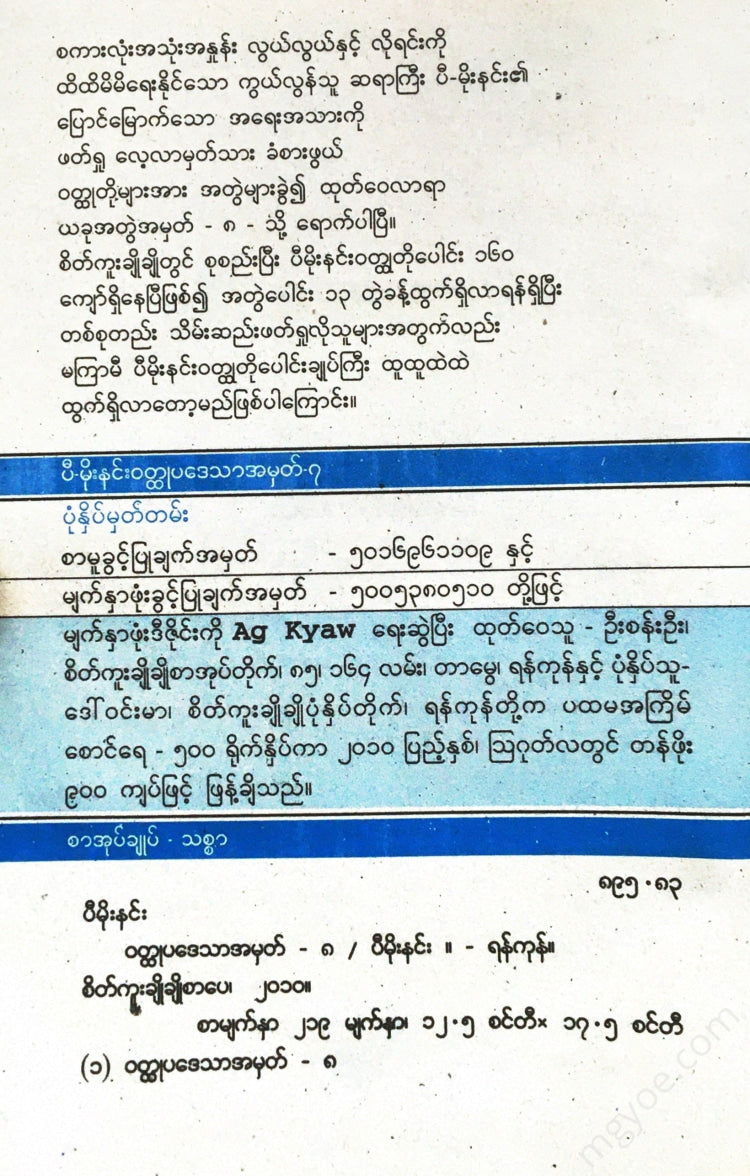 စကားလုံးအသုံးအနှုန်း လွယ်လွယ်နှင့် လိုရင်းကို
ထိထိမိမိရေးနိုင်သော ကွယ်လွန်သူ ဆရာကြီး ပီ-မိုးနင်း၏
ပြောင်မြောက်သော အရေးအသားကို
ဖတ်ရှု လေ့လာမှတ်သား ခံစားဖွယ်
ဝတ္ထုတိုများအား အတွဲများခွဲ၍ ထုတ်ဝေလာရာ
ယခုအတွဲအမှတ် - ၈ - သို့ ရောက်ပါပြီ။
စိတ်ကူးချိုချိုတွင် စုစည်းပြီး ပီမိုးနင်းဝတ္ထုတိုပေါင်း ၁၆၀
ကျော်ရှိနေပြီဖြစ်၍ အတွဲပေါင်း ၁၃ တွဲခန့်ထွက်ရှိလာရန်ရှိပြီး
တစ်စုတည်း သိမ်းဆည်းဖတ်ရှုလိုသူများအတွက်လည်း
မကြာမီ ပီမိုးနင်းဝတ္ထုတိုပေါင်းချုပ်ကြီး ထူထူထဲထဲ
ထွက်ရှိလာတော့မည်ဖြစ်ပါကြောင်း။
ပီ-မိုးနင်းဝတ္ထုပဒေသာအမှတ်-၇
ပုံနှိပ်မှတ်တမ်း
စာမူခွင့်ပြုချက်အမှတ် - ၅၀၁၆၉၆၁၁၀၉ နှင့်
မျက်နှာဖုံးခွင့်ပြုချက်အမှတ် - ၅၀၀၅၃၈၀၅၁၀ တို့ဖြင့်
မျက်နှာဖုံးဒီဇိုင်းကို Ag Kyaw ရေးဆွဲပြီး ထုတ်ဝေသူ - ဦးစန်းဦး၊
စိတ်ကူးချိုချိုစာအုပ်တိုက်၊ ၈၅၊ ၁၆၄ လမ်း၊ တာမွေ၊ ရန်ကုန်နှင့် ပုံနှိပ်သူ-
ဒေါ်ဝင်းမာ၊ စိတ်ကူးချိုချိုပုံနှိပ်တိုက်၊ ရန်ကုန်တို့က ပထမအကြိမ်
စောင်ရေ - ၅၀၀ ရိုက်နှိပ်ကာ ၂၀၁၀ ပြည့်နှစ်၊ ဩဂုတ်လတွင် တန်ဖိုး
၉၀၀ ကျပ်ဖြင့် ဖြန့်ချိသည်။
စာအုပ်ချုပ် - သစ္စာ
၈၉၅ . ၈၃
ပီမိုးနင်း
ဝတ္ထုပဒေသာအမှတ် - ၈ / ပီမိုးနင်း ။ - ရန်ကုန်။
စိတ်ကူးချိုချိုစာပေ၊ ၂၀၁၀။
စာမျက်နှာ ၂၁၉ မျက်နှာ၊ ၁၂.၅ စင်တီ× ၁၇.၅ စင်တီ
(၁) ဝတ္ထုပဒေသာအမှတ် - ၈
mgyoe.com